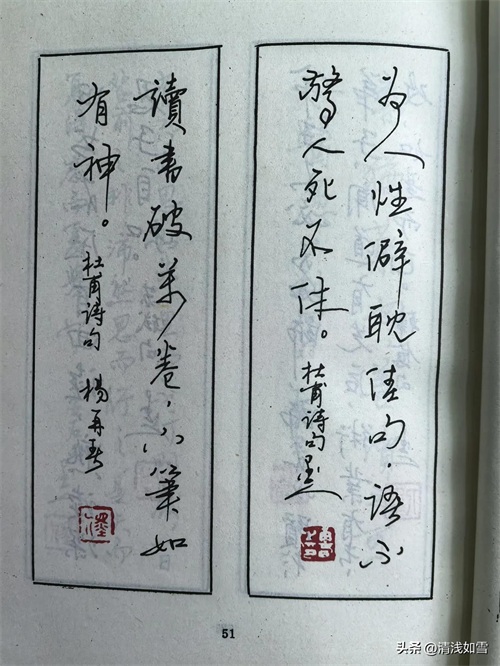 为人性僻耽佳句，语不
驚人死不休。杜甫诗句
讀書破萬卷，下筆如
有神。杜甫诗句 楊再春
51
头条 @清浅如雪